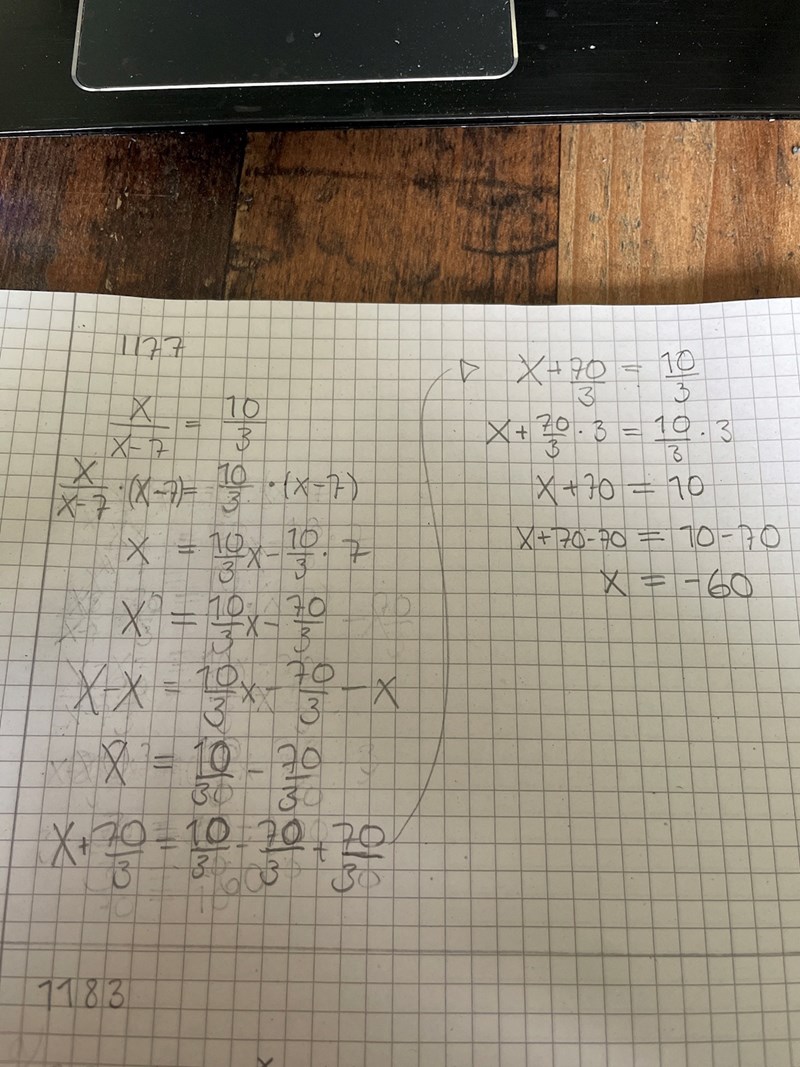 1177
x/(x-7) = 10/3
x/(x-7) · (x-7) = 10/3 · (x-7)
x = 10/3 x - 10/3 · 7
x = 10/3 x - 70/3
x-x = 10/3 x - 70/3 - x
x = 10/3 - 70/3
x + 70/3 = 10/3 - 70/3 + 70/3
x + 70/3 = 10/3
x + 70/3 · 3 = 10/3 · 3
x + 70 = 10
x + 70 - 70 = 10 - 70
x = -60
1183